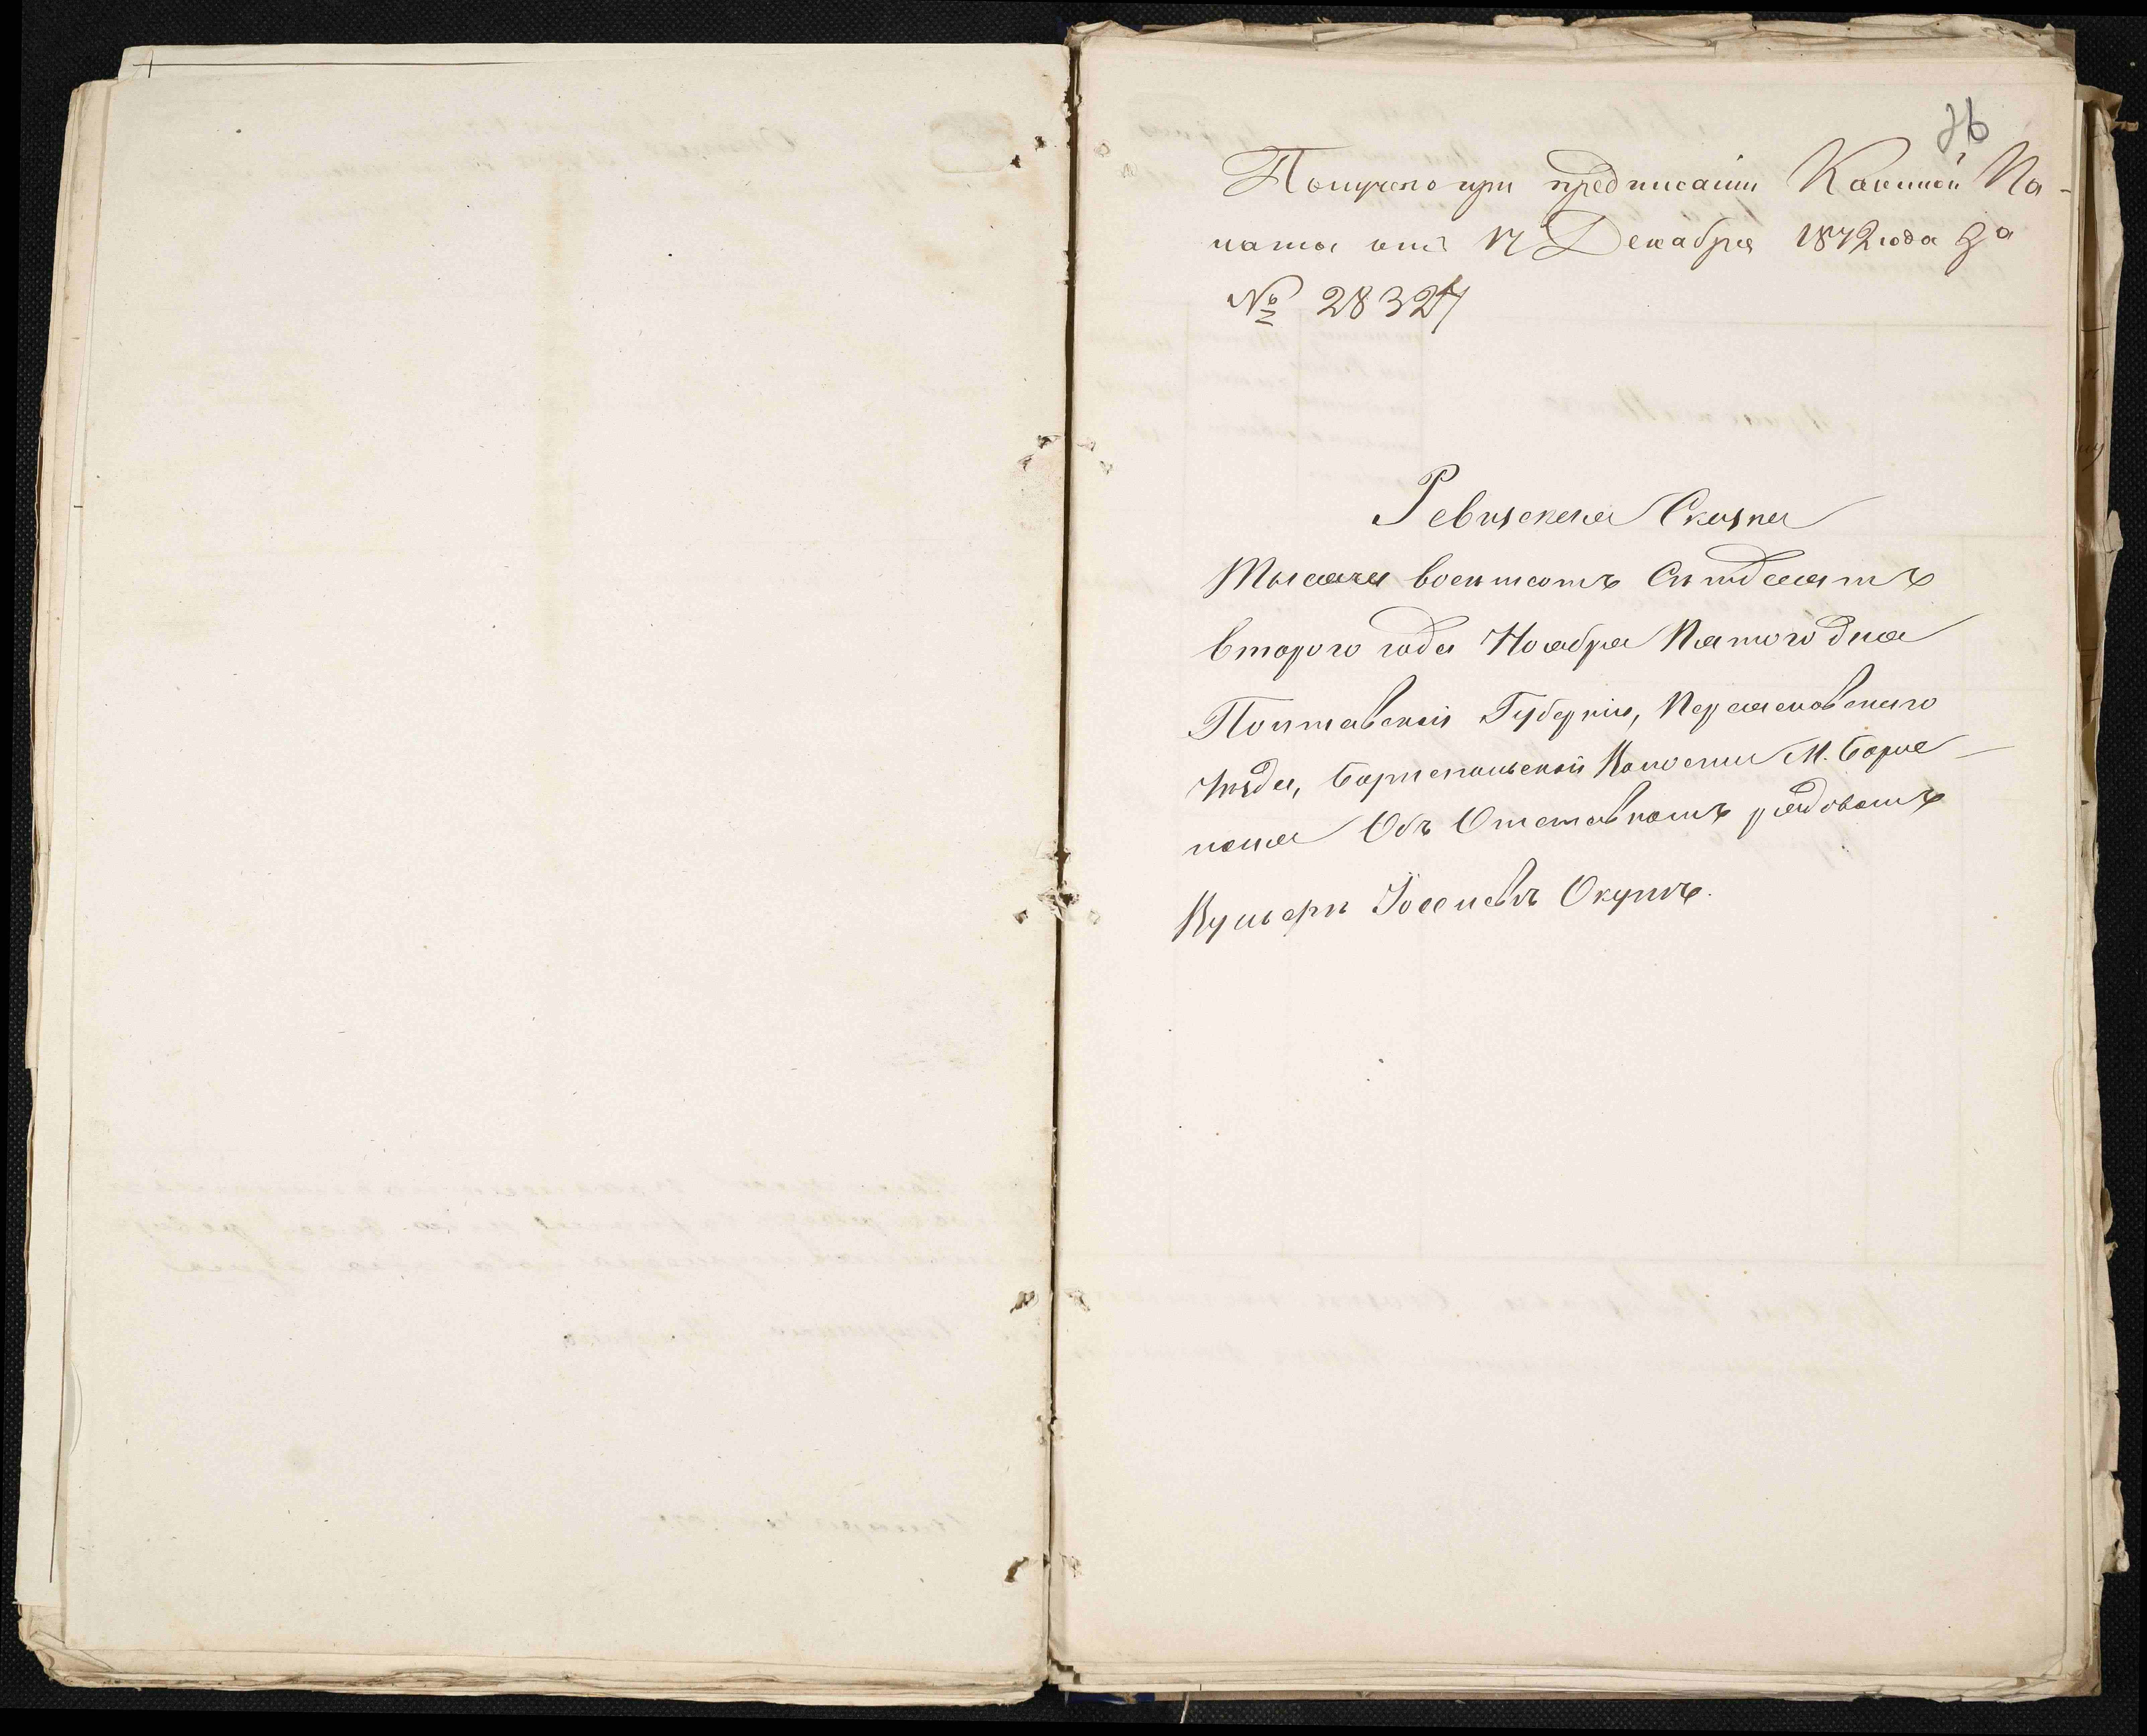 36
Получено при предписании Казенной Па-
латы отъ 17 Декабря 1872 года За
№ 28324
Ревизская Сказка
Тысяча восемьсотъ Семдесятъ
втораго года Ноября Пятого дня
Полтавской Губерніи, Переяславского
Уѣзда, Бориспольской Волости М. Борис
поля Объ Отставномъ рядовомъ
Іосіевѣ Окунѣ.